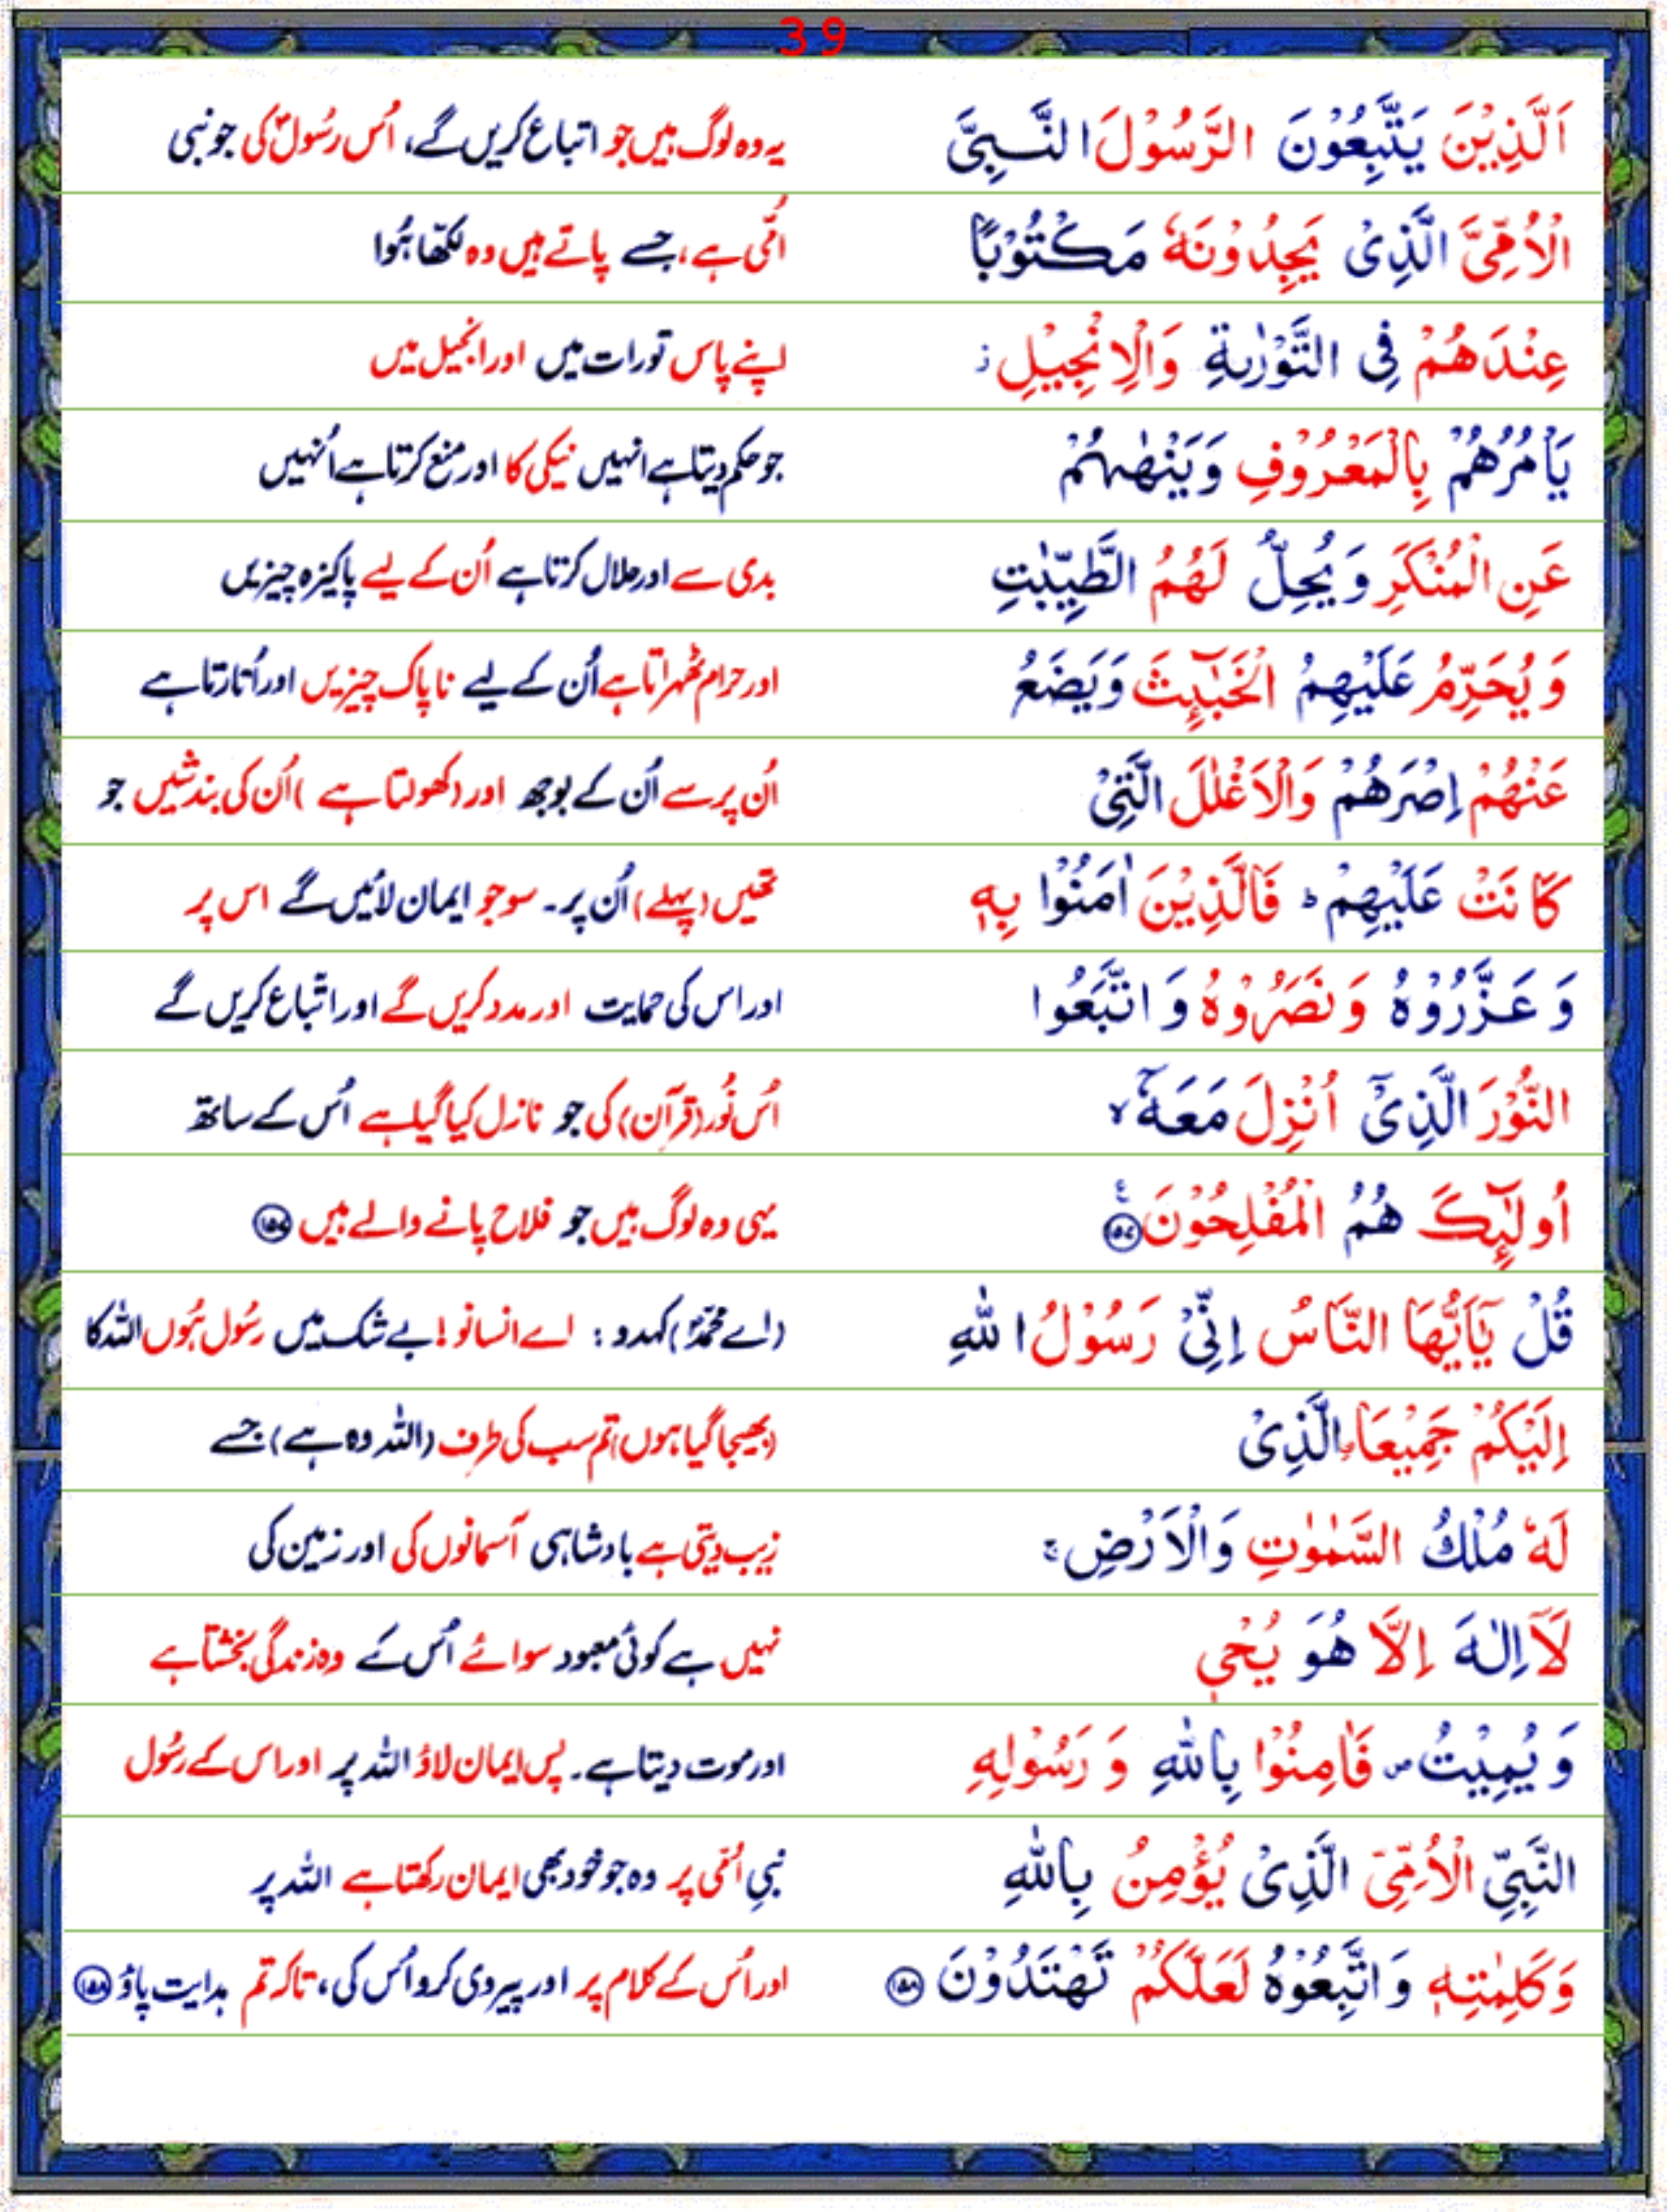 39
اَلَّذِيْنَ يَتَّبِعُوْنَ الرَّسُوْلَ النَّبِىَّ یہ وہ لوگ ہیں جو اتباع کریں گے، اُس رسُولؐ کی جو نبی
الْاُمِّىَّ الَّذِىْ يَجِدُوْنَهٗ مَكْتُوْبًا اُمّی ہے، جسے پاتے ہیں وہ لکھّا ہُوا
عِنْدَهُمْ فِى التَّوْرٰىةِ وَالْاِنْجِيْلِ ز اپنے پاس تورات میں اور انجیل میں
يَاْمُرُهُمْ بِالْمَعْرُوْفِ وَيَنْهٰىهُمْ جو حکم دیتا ہے انہیں نیکی کا اور منع کرتا ہے اُنہیں
عَنِ الْمُنْكَرِ وَيُحِلُّ لَهُمُ الطَّيِّبٰتِ بدی سے اور حلال کرتا ہے اُن کے لیے پاکیزہ چیزیں
وَيُحَرِّمُ عَلَيْهِمُ الْخَبٰٓئِثَ وَيَضَعُ اور حرام ٹھہراتا ہے اُن کے لیے ناپاک چیزیں اور اُتارتا ہے
عَنْهُمْ اِصْرَهُمْ وَالْاَغْلٰلَ الَّتِىْ اُن پر سے اُن کے بوجھ اور (کھولتا ہے) اُن کی بندشیں جو
كَانَتْ عَلَيْهِمْ ؕ فَالَّذِيْنَ اٰمَنُوْا بِهٖ تھیں (پہلے) اُن پر۔ سو جو ایمان لائیں گے اس پر
وَعَزَّرُوْهُ وَنَصَرُوْهُ وَاتَّبَعُوا اور اس کی حمایت اور مدد کریں گے اور اتّباع کریں گے
النُّوْرَ الَّذِىْٓ اُنْزِلَ مَعَهٗٓ ۙ اُس نُور (قرآن) کی جو نازل کیا گیا ہے اُس کے ساتھ
اُولٰٓئِكَ هُمُ الْمُفْلِحُوْنَ ﴿۱۵۷﴾ ع یہی وہ لوگ ہیں جو فلاح پانے والے ہیں ﴿۱۵۷﴾
قُلْ يٰٓاَيُّهَا النَّاسُ اِنِّىْ رَسُوْلُ اللّٰهِ (اے محمّدؐ) کہہ دو : اے انسانو! بے شک میں رسُول ہُوں اللہ کا
اِلَيْكُمْ جَمِيْعَاۨ الَّذِىْ (بھیجا گیا ہوں) تم سب کی طرف (اللہ وہ ہے) جسے
لَهٗ مُلْكُ السَّمٰوٰتِ وَالْاَرْضِ ۚ زیب دیتی ہے بادشاہی آسمانوں کی اور زمین کی
لَآ اِلٰهَ اِلَّا هُوَ يُحْىٖ نہیں ہے کوئی معبود سوائے اُس کے وہ زندگی بخشتا ہے
وَيُمِيْتُ ۪ فَاٰمِنُوْا بِاللّٰهِ وَرَسُوْلِهِ اور موت دیتا ہے۔ پس ایمان لاؤ اللہ پر اور اس کے رسُول
النَّبِىِّ الْاُمِّىِّ الَّذِىْ يُؤْمِنُ بِاللّٰهِ نبیِ اُمّی پر وہ جو خود بھی ایمان رکھتا ہے اللہ پر
وَكَلِمٰتِهٖ وَاتَّبِعُوْهُ لَعَلَّكُمْ تَهْتَدُوْنَ ﴿۱۵۸﴾ اور اُس کے کلام پر اور پیروی کرو اُس کی، تاکہ تم ہدایت پاؤ ﴿۱۵۸﴾